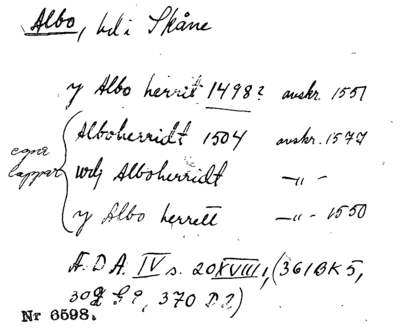 Albo, hd i Skåne
y Albo herrit 1498? avskr. 1551
Alboherridt 1504 avskr. 1577
egna
lappar
wdj Alboherridt —„—
y Albo herrett —„— 1550
Æ.D.A. IV s. 20 XVIII, (361 BK 5,
30 G 9, 370 D 2)
Nr 6598.